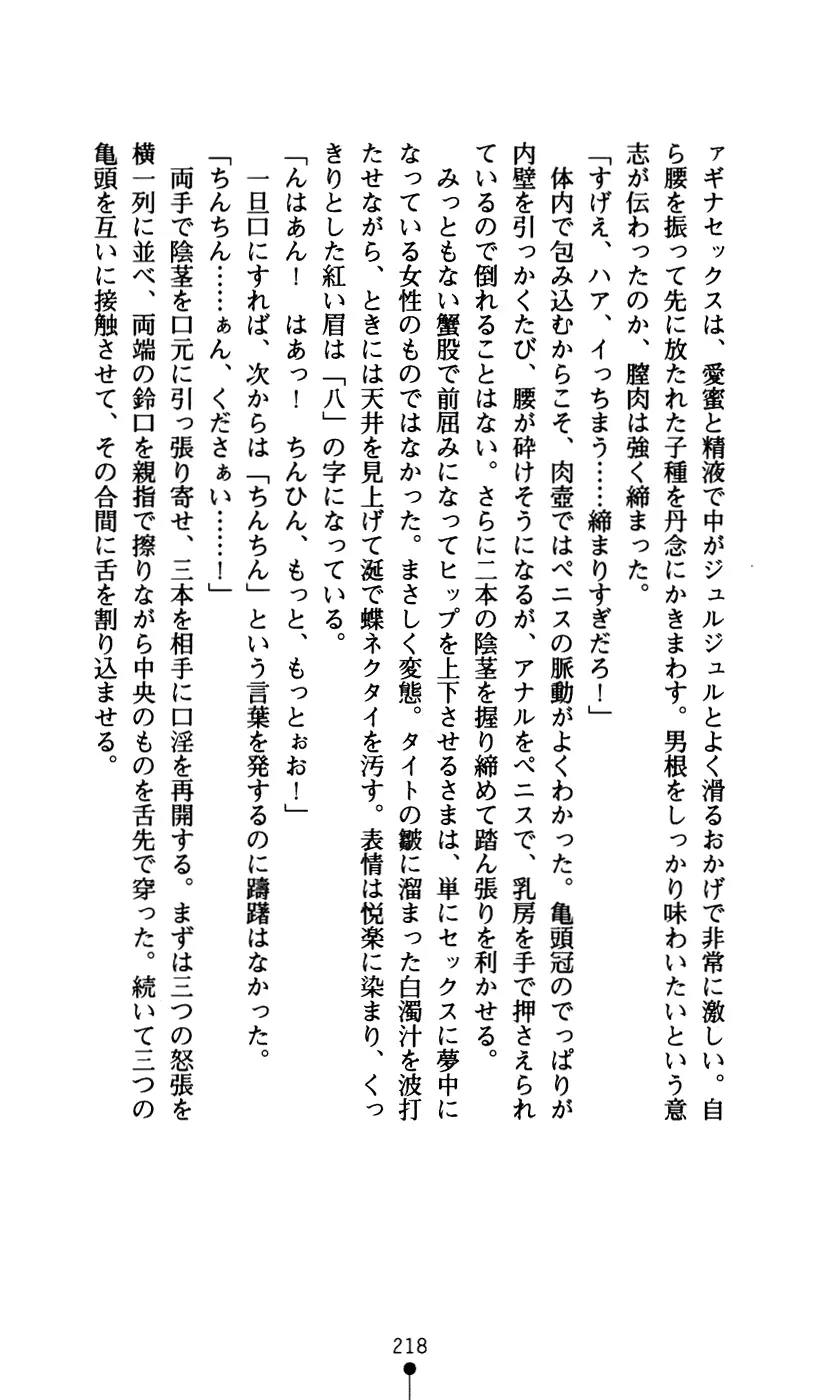 ァギナセックスは、愛蜜と精液で中がジュルジュルとよく滑るおかげで非常に激しい。自
ら腰を振って先に放たれた子種を丹念にかきまわす。男根をしっかり味わいたいという意
志が伝わったのか、膣肉は強く締まった。
「すげえ、ハア、イっちまう……締まりすぎだろ！」
　体内で包み込むからこそ、肉壺ではペニスの脈動がよくわかった。亀頭冠のでっぱりが
内壁を引っかくたび、腰が砕けそうになるが、アナルをペニスで、乳房を手で押さえられ
ているので倒れることはない。さらに二本の陰茎を握り締めて踏ん張りを利かせる。
　みっともない蟹股で前屈みになってヒップを上下させるさまは、単にセックスに夢中に
なっている女性のものではなかった。まさしく変態。タイトの皺に溜まった白濁汁を波打
たせながら、ときには天井を見上げて涎で蝶ネクタイを汚す。表情は悦楽に染まり、くっ
きりとした紅い眉は「八」の字になっている。
「んはあん！　はあっ！　ちんひん、もっと、もっとぉお！」
　一旦口にすれば、次からは「ちんちん」という言葉を発するのに躊躇はなかった。
「ちんちん……ぁん、くださぁい……！」
　両手で陰茎を口元に引っ張り寄せ、三本を相手に口淫を再開する。まずは三つの怒張を
横一列に並べ、両端の鈴口を親指で擦りながら中央のものを舌先で穿った。続いて三つの
亀頭を互いに接触させて、その合間に舌を割り込ませる。
218